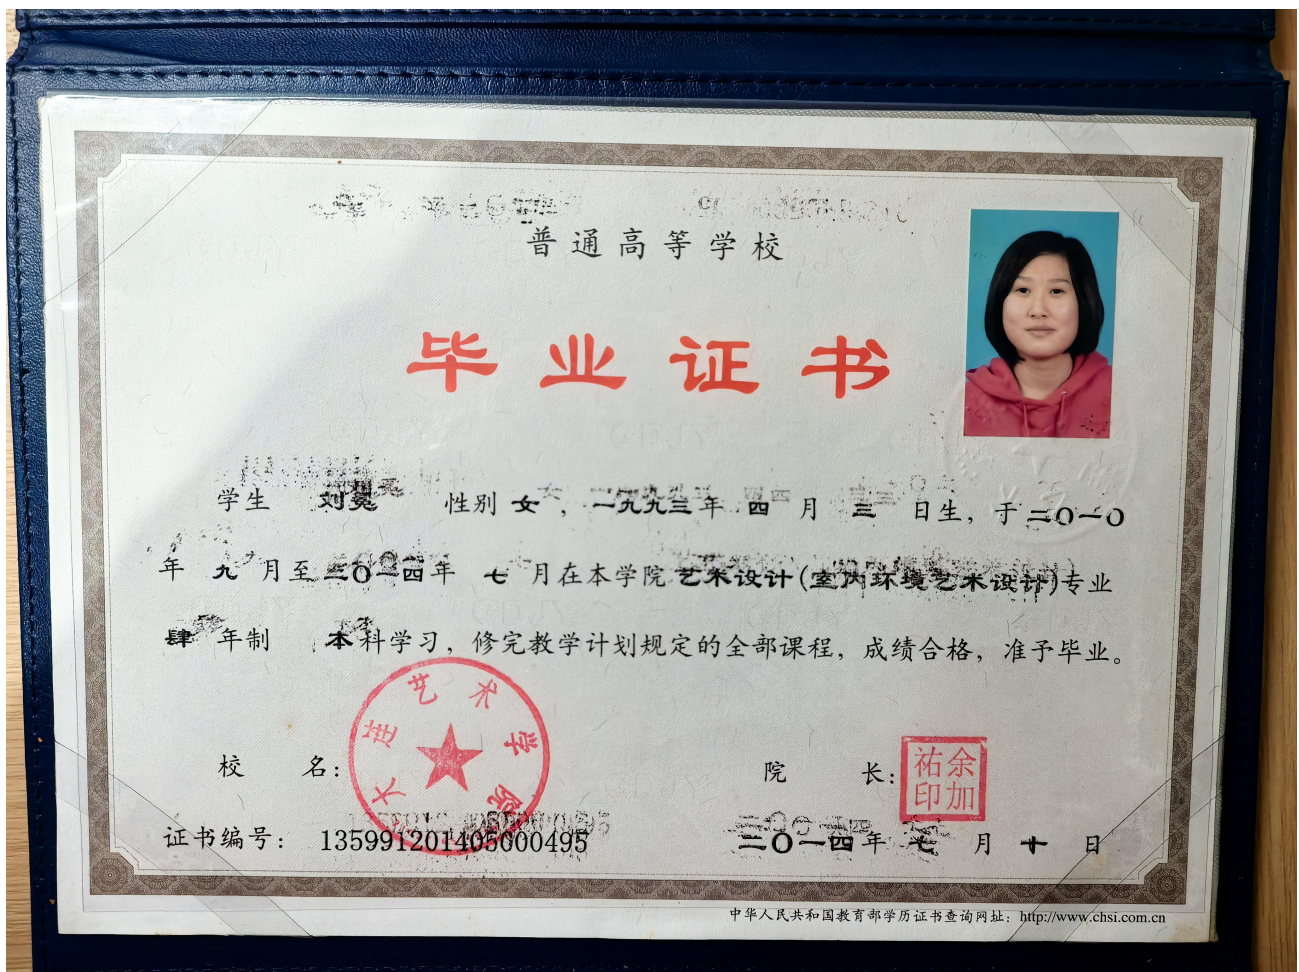 普通高等学校
毕业证书
学生 刘冕 性别 女，一九九三年 四 月 三 日生，于二〇一〇
年 九 月至二〇一四年 七 月在本学院艺术设计(室内环境艺术设计)专业
肆 年制 本科学习，修完教学计划规定的全部课程，成绩合格，准予毕业。
大连艺术学院
校 名： 院 长：
余加祐印
证书编号： 135991201405000495 二〇一四年 七 月 十 日
中华人民共和国教育部学历证书查询网址：http://www.chsi.com.cn